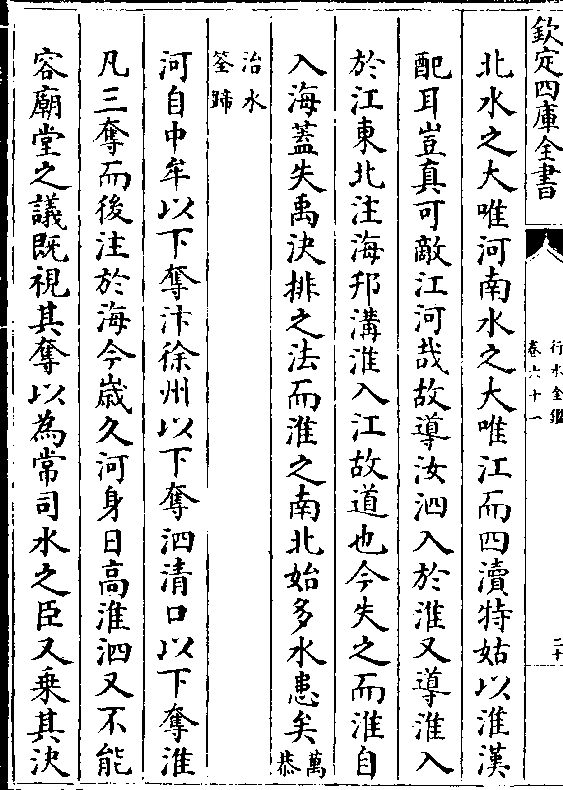 欽定四庫全書
行水金鑑
卷六十一
二十
北水之大唯河南水之大唯江而四瀆特姑以淮漢
配耳豈真可敵江河哉故導汝泗入於淮又導淮入
於江東北注海邗溝淮入江故道也今失之而淮自
入海蓋失禹決排之法而淮之南北始多水患矣萬恭
治水
筌蹄
河自中牟以下奪汴徐州以下奪泗清口以下奪淮
凡三奪而後注於海今歲久河身日高淮泗又不能
容廟堂之議既視其奪以為常司水之臣又乗其決